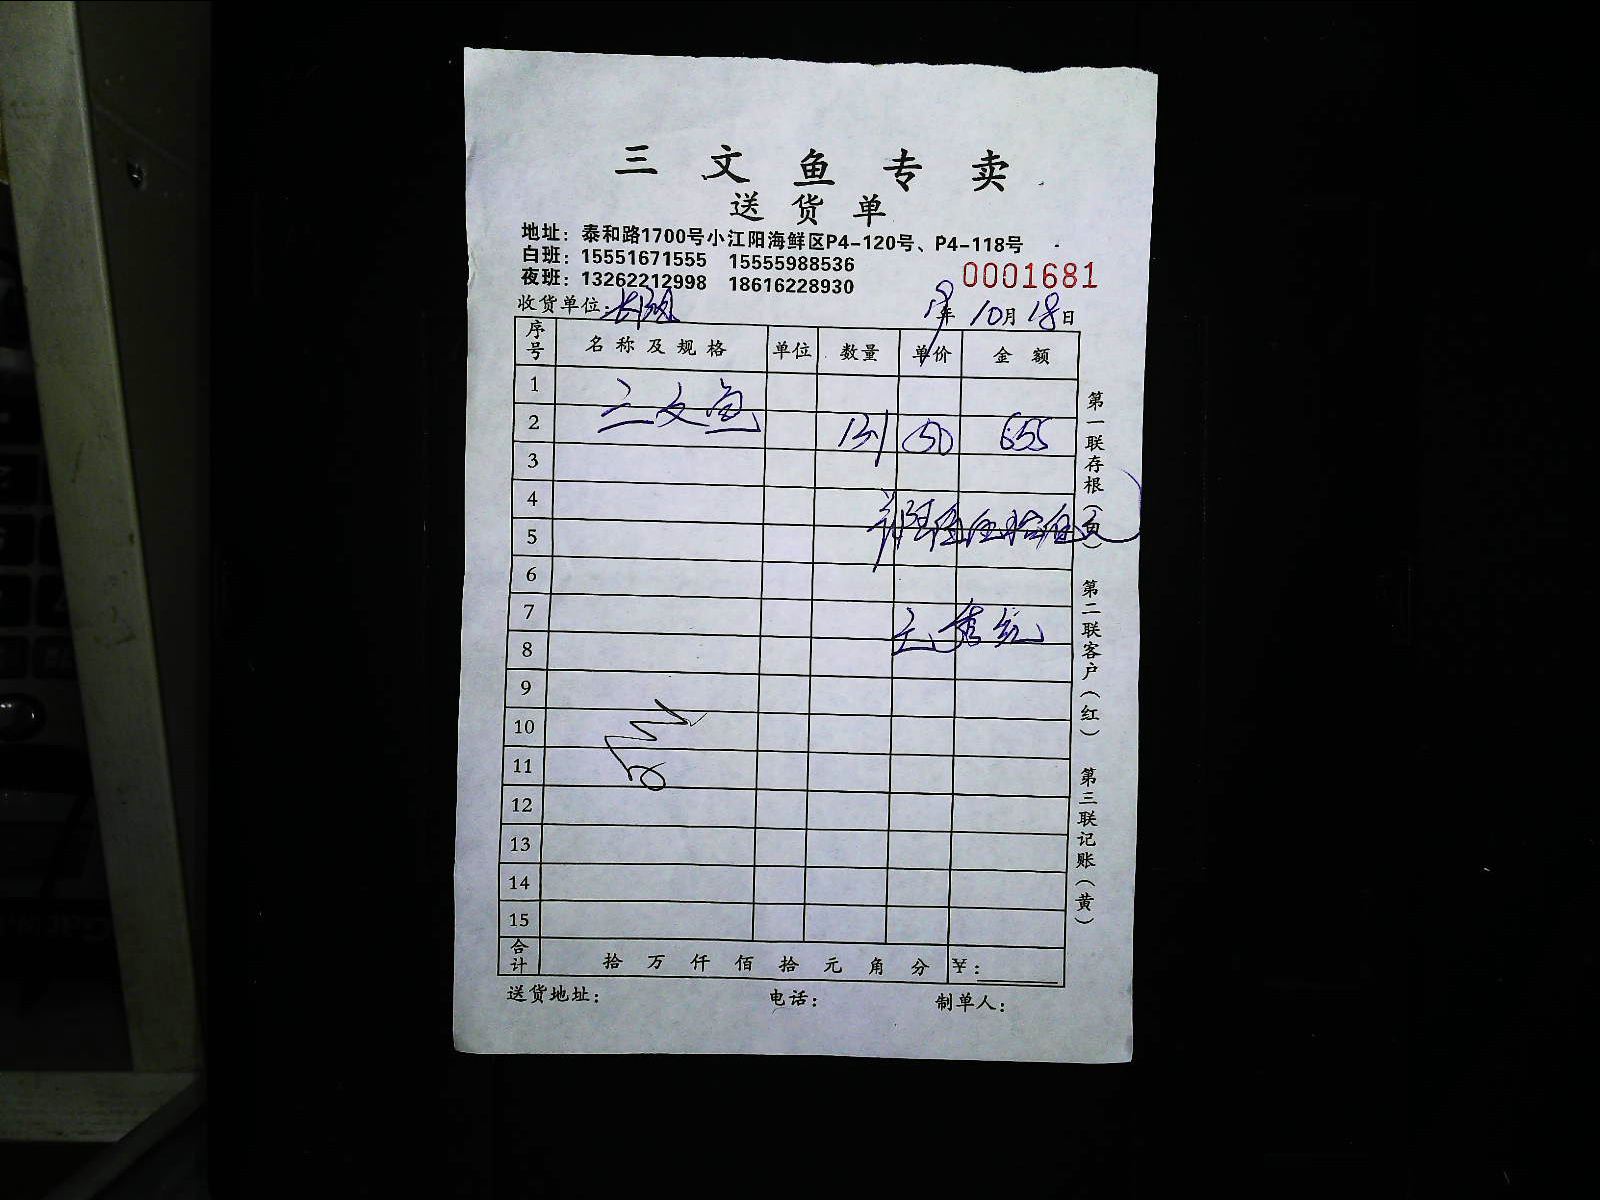 三文鱼专卖
送货单
地址：泰和路1700号小江阳海鲜区P4-120号、P4-118号
白班：15551671555 15555988536
夜班：13262212998 18616228930
0001681
收货单位：
19年10月18日
序号 名称及规格 单位 数量 单价 金额
1
2 三文鱼 131 50 655
3
4
5
6
7
8
9
10
11
12
13
14
15
合计 拾万仟佰拾元角分 ¥：
送货地址： 电话： 制单人：
第一联存根（白） 第二联客户（红） 第三联记账（黄）